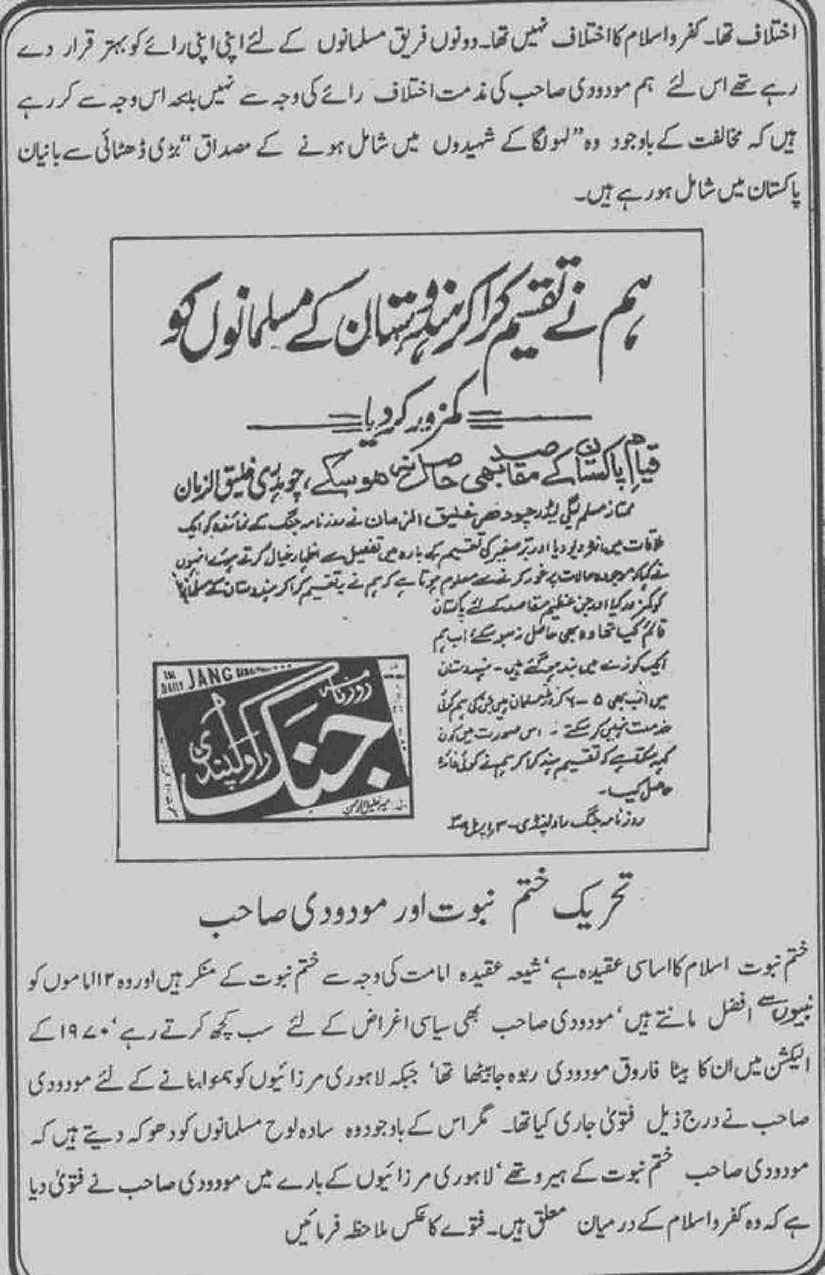 اختلاف تھا۔ کفر و اسلام کا اختلاف نہیں تھا۔ دونوں فریق مسلمانوں کے لئے اپنی اپنی رائے کو بہتر قرار دے
رہے تھے اس لئے ہم مودودی صاحب کی مذمت اختلاف رائے کی وجہ سے نہیں بلکہ اس وجہ سے کر رہے
ہیں کہ مخالفت کے باوجود وہ "لہو لگا کے شہیدوں میں شامل ہونے کے مصداق" بڑی ڈھٹائی سے بانیان
پاکستان میں شامل ہو رہے ہیں۔
ہم نے تقسیم کرا کر ہندوستان کے مسلمانوں کو
کمزور کر دیا
قیام پاکستان کے مقاصد بھی حاصل نہیں ہو سکے، چوہدری خلیق الزمان
ممتاز مسلم لیگی لیڈر چودھری خلیق الزمان نے روزنامہ جنگ کے نمائندہ کو ایک
ملاقات میں انٹرویو دیا اور برصغیر کی تقسیم کے بارہ میں تفصیل سے اظہار خیال کرتے ہوئے انہوں
نے کہا کہ موجودہ حالات پر غور کرنے سے معلوم ہوتا ہے کہ ہم نے تقسیم کرا کر ہندوستان کے مسلمانوں
کو کمزور کیا اور جن عظیم مقاصد کے لئے پاکستان
قائم کیا تھا وہ بھی حاصل نہ ہو سکے؛ اب ہم
ایک کوزے میں بند ہو گئے ہیں۔ ہندوستان
میں اب بھی ۵-۶ کروڑ مسلمان ہیں جن کی ہم کوئی
خدمت نہیں کر سکتے۔ اس صورت میں کون
کہہ سکتا ہے کہ تقسیم ہند کرا کر ہم نے کوئی فائدہ
حاصل کیا۔
روزنامہ جنگ راولپنڈی۔ ۳ اپریل
THE DAILY JANG
روزنامہ
جنگ
راولپنڈی
میر خلیل الرحمن
تحریک ختم نبوت اور مودودی صاحب
ختم نبوت اسلام کا اساسی عقیدہ ہے' شیعہ عقیدہ امامت کی وجہ سے ختم نبوت کے منکر ہیں اور وہ ۱۲ اماموں کو
نبیوں سے افضل مانتے ہیں' مودودی صاحب بھی سیاسی اغراض کے لئے سب کچھ کرتے رہے' ۱۹۷۰ کے
الیکشن میں ان کا بیٹا فاروق مودودی ربوہ جا بیٹھا تھا' جبکہ لاہوری مرزائیوں کو ہمنوا بنانے کے لئے مودودی
صاحب نے درج ذیل فتویٰ جاری کیا تھا۔ مگر اس کے باوجود وہ سادہ لوح مسلمانوں کو دھوکہ دیتے ہیں کہ
مودودی صاحب ختم نبوت کے ہیرو تھے' لاہوری مرزائیوں کے بارے میں مودودی صاحب نے فتویٰ دیا
ہے کہ وہ کفر و اسلام کے درمیان معلق ہیں۔ فتوے کا عکس ملاحظہ فرمائیں